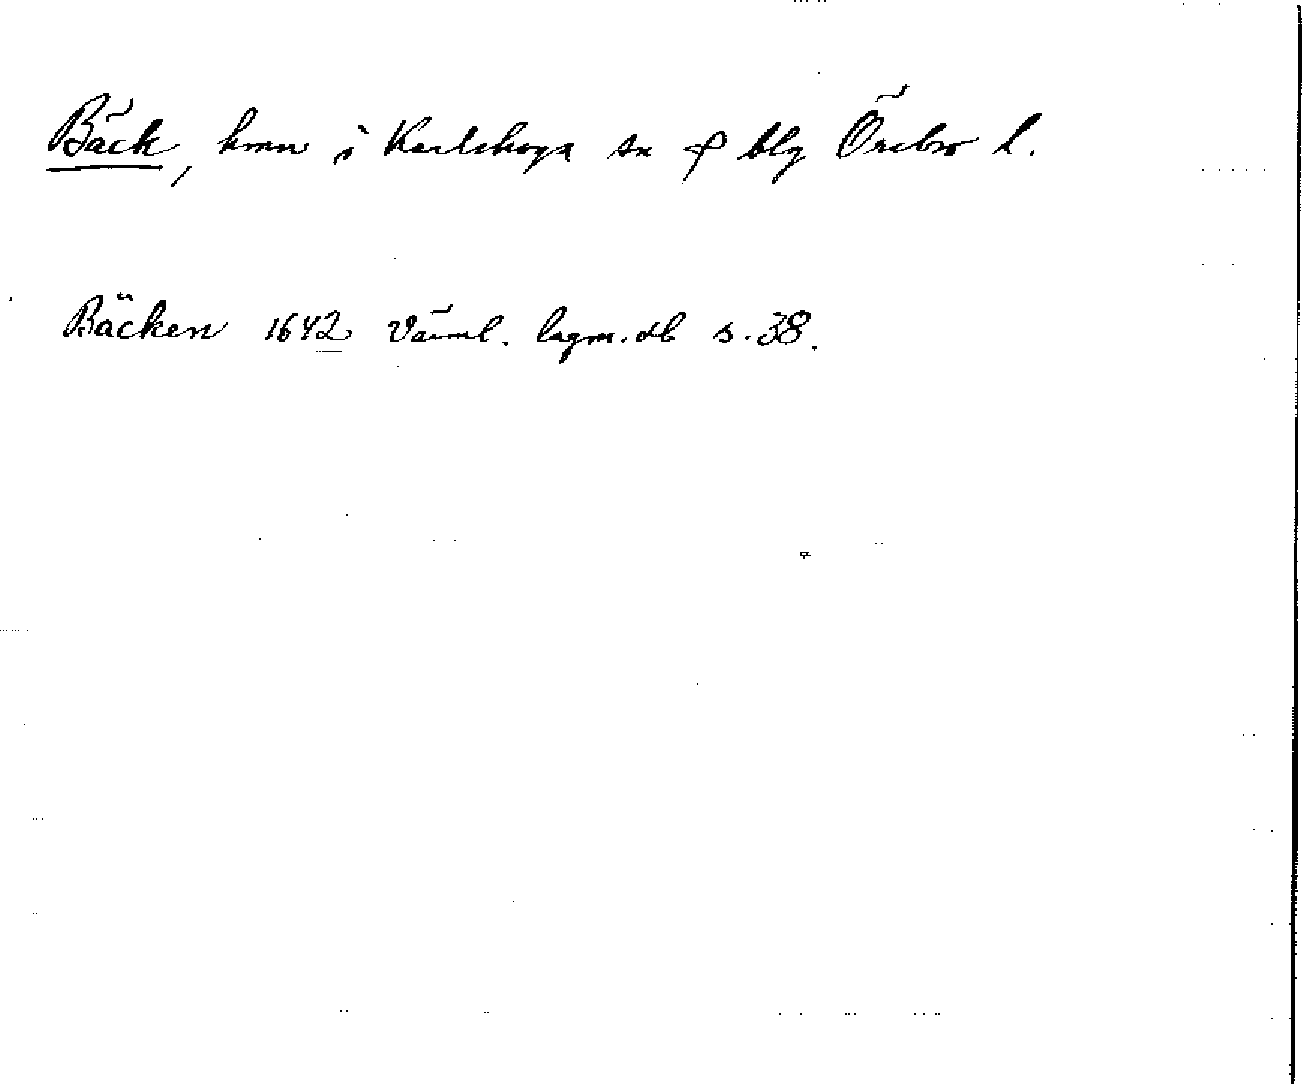 Bäck, hmn i Karlskoga sn o blg Örebro l.
Bäcken 1642 Värml. lagm. db s. 38.